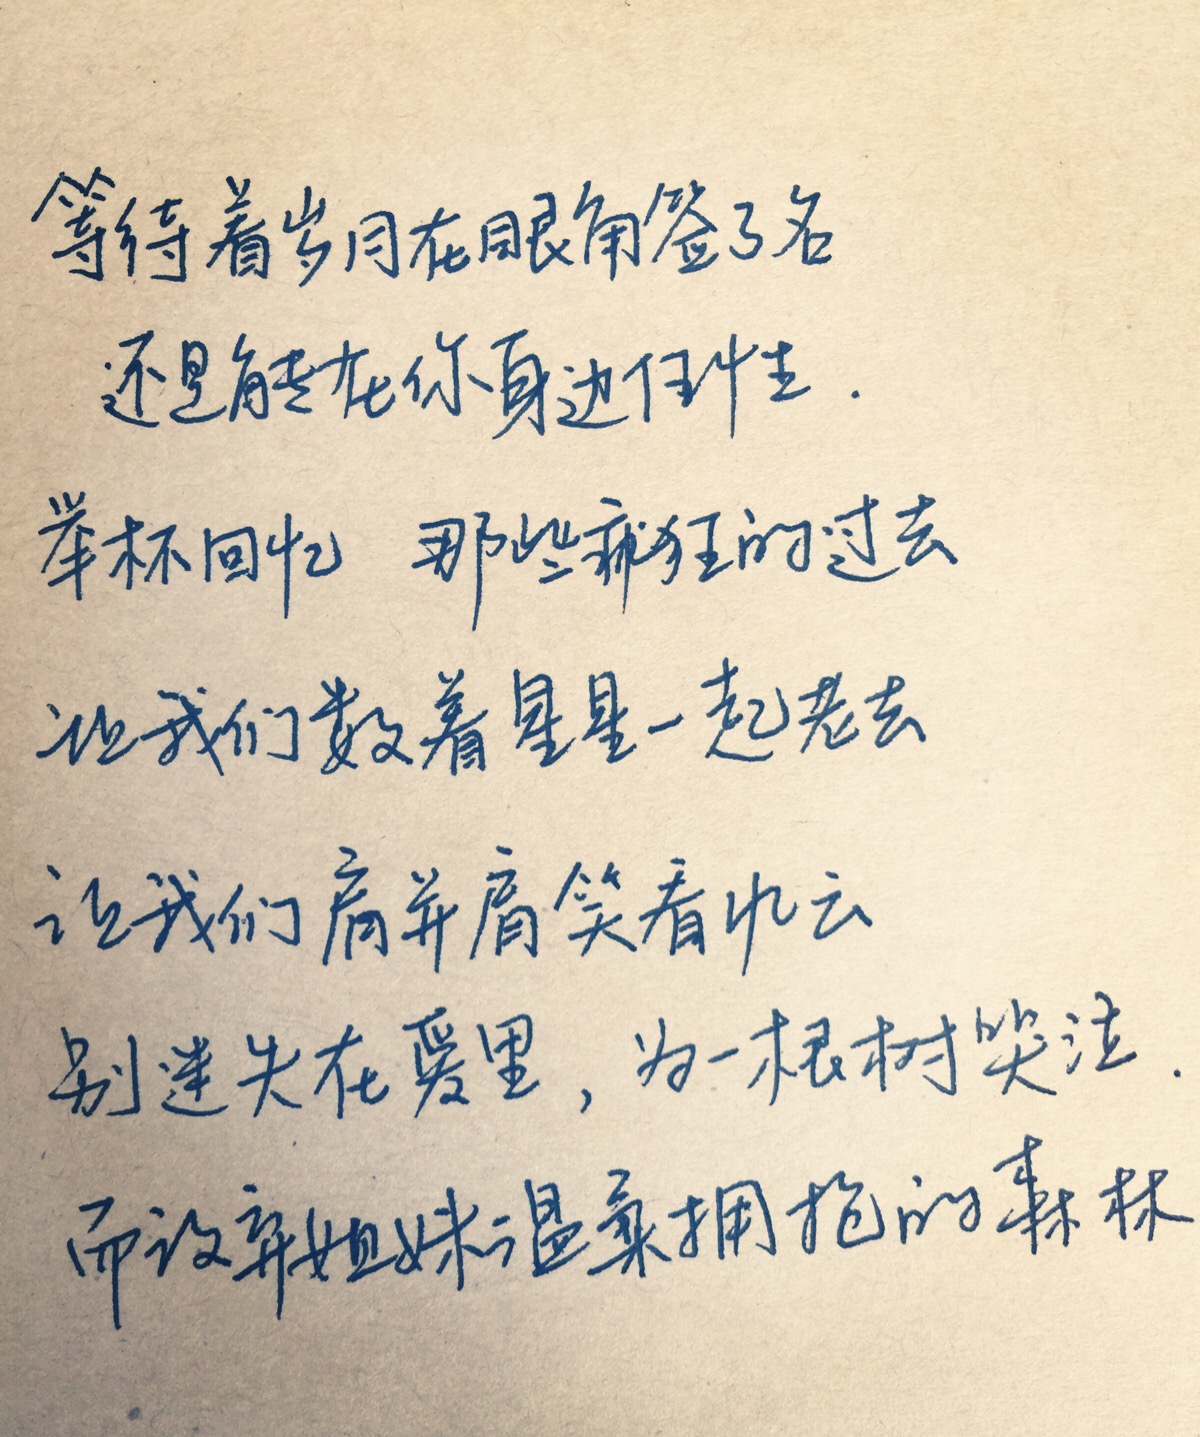 等待着岁月在眼角签了名
还是能在你身边任性.
举杯回忆 那些疯狂的过去
让我们数着星星一起老去
让我们肩并肩笑看风云
别迷失在爱里,为一根树哭泣.
而放弃姐妹温柔拥抱的森林